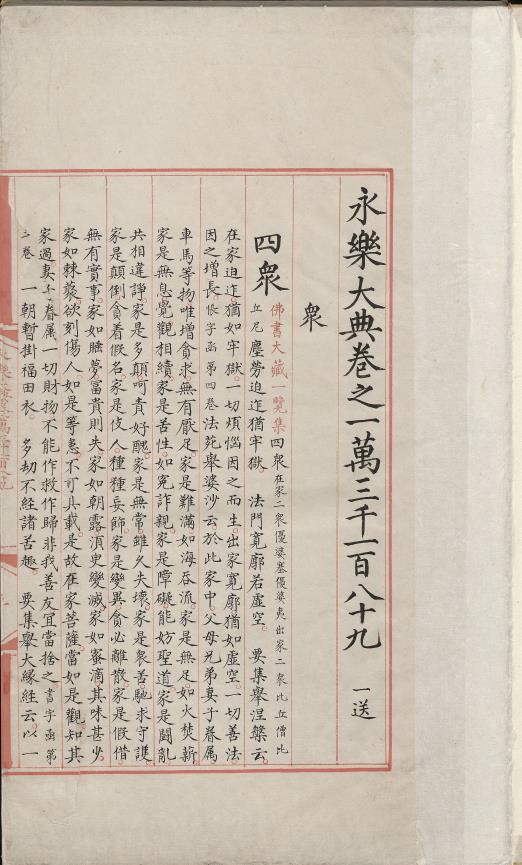 永樂大典卷之一萬三千一百八十九 一送
衆
四衆 佛書大藏一覽集四衆在家二衆優婆塞優婆夷出家二衆比丘僧比
丘尼塵勞迫迮猶牢獄 法門寬廓若虚空 要集舉涅槃云
在家迫迮猶如牢獄一切煩惱因之而生出家寬廓猶如虚空一切善法
因之增長恨字函第四卷法苑舉婆沙云於此家中父母兄弟妻子眷屬
車馬等物唯增貪求無有厭足家是難滿如海吞流家是無足如火焚薪
家是無息覺觀相續家是苦性如冤詐親家是障礙能妨聖道家是鬪亂
共相違諍家是多顛呵責好醜家是無常雖久失壞家是衆苦馳求守護
家是顛倒貪着假名家是伎人種種妄飾家是變異貪必離散家是假借
無有實事家如睡夢富貴則失家如朝露湏史變滅家如蜜滴其味甚少
家如棘䕺欲刻傷人如是等患不可具載是故在家菩薩當如是觀知其
家過妻子眷屬一切財物不能作救作歸非我善友宜當捨之書字函第
二卷 一朝暫掛福田衣 多劫不經諸苦趣 要集舉大緣經云以一